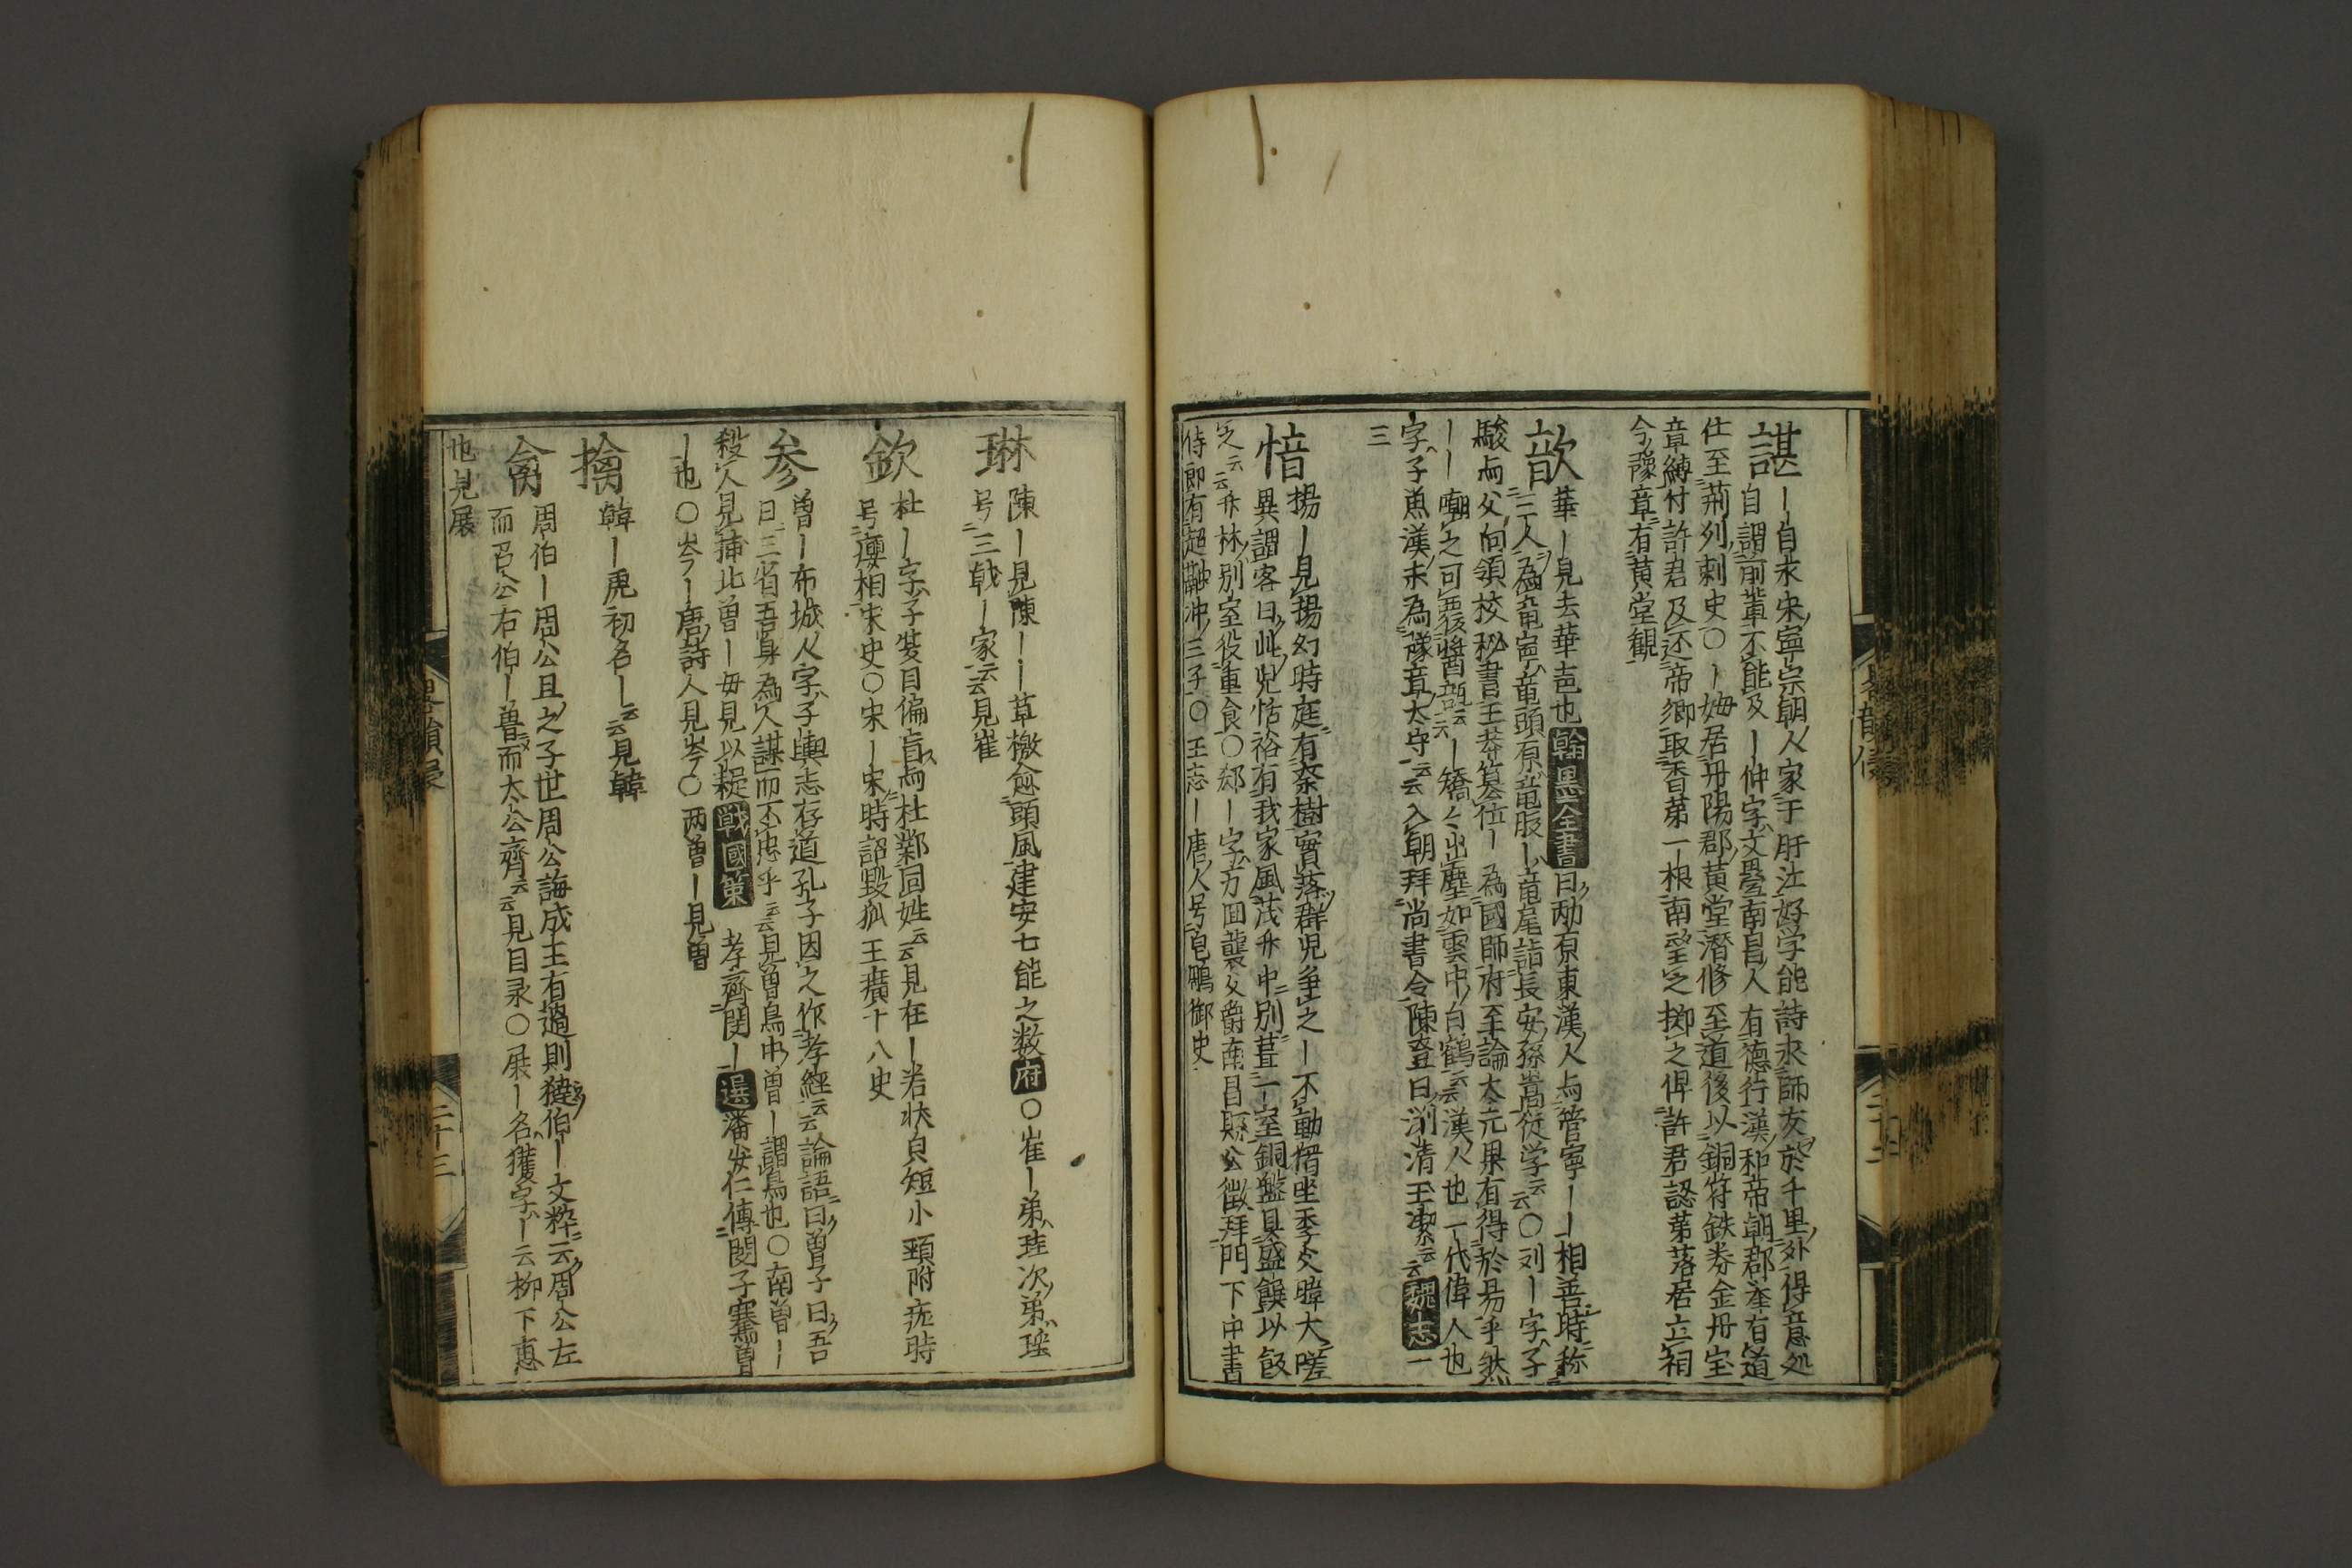 諶
ー自求宋寧宗朝人家于盱江好学能詩求師友於千里外得意処
自謂前輩不能及ー仲字文墨南昌人有德行漢和帝朝郡产有道
仕至荊列刺史〇ー姆居丹陽郡黄堂潜修至道後以銅符鉄券金丹宝
章縛付許君及还帝郷取香茅一根南望擲之俾許君認茅落居立祠
今豫章有黄堂観
歆
華ー見去華邑也翰墨全書曰邴原東漢人与管寧ーー相善時称
三人為竜寧竜頭原竜服ー竜尾詣長安孫嵩従学云云〇列ー字子
駿与父向領校秘書王莽簒位ー為國師府至論太元果有得於易乎然
ーー嘲之可覆醬瓿云云ー矯々出塵如雲中白鶴云云漢人也一代偉人也
字子魚漢末為豫章太守云云入朝拜尚書令陳登曰渕清玉潔云云魏志一
三
愔
揚ー見揚幻時庭有柰樹實落群児争之ー不動㨿坐季父暐大嗟
異謂客曰此児恬裕有我家風茂竹中別葺一室銅盤具盛饌以飯
之云云竹林別室役重食〇郄ー字方回襲父爵南昌縣公徵拜門下中書
侍郎有超融冲三子〇王志ー唐人号皀鵰御史
琳
陳ー見陳ーー草檄愈頭風建安七能之数府〇崔ー弟珪次弟瑶
号三戟ー家云云見崔
欽
杜ー字子夏目偏盲与杜鄴同姓云云見在ー若状皃短小頸附疣時
号癭相宋史〇宋ー宋時詔毀狐王廣十八史
参
曽ー布城人字子輿志存道孔子因之作孝經云云論語曰曽子曰吾
日三省吾身為人謀而不忠乎云云見曽鳥中曽ー謂鳥也〇南曽ー
殺人見捕北曽ー毋見以疑戦國策孝齊閔ー選潘安仁傳閔子騫曽
ー也〇岑ー唐詩人見岑〇两曽ー見曽
擒
韓ー虎初名ー云云見韓
禽
周伯ー周公且之子世周公誨成王有過則撻伯ー文粋云周公左
而召公右伯ー魯而太公齊云云見目录〇展ー名獲字ー云柳下惠
也見展
二十三